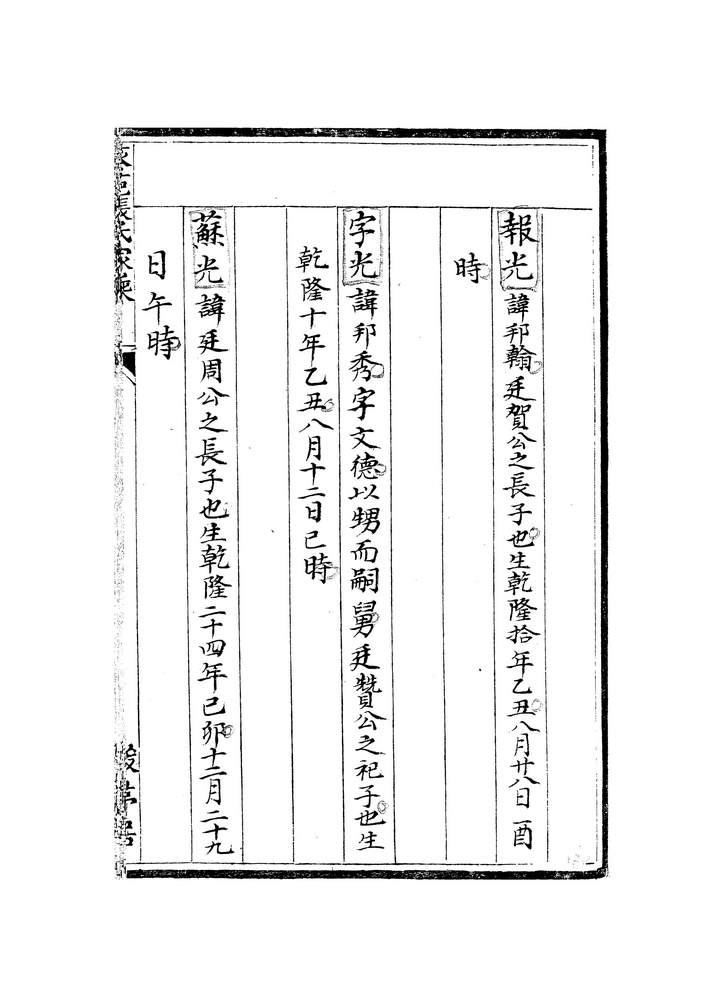 報光 諱邦翰廷賀公之長子也生乾隆拾年乙丑八月廿八日酉
時
字光 諱邦秀字文德以甥而嗣舅廷贊公之祀子也生
乾隆十年乙丑八月十二日巳時
蘇光 諱廷周公之長子也生乾隆二十四年己卯十二月二十九
日午時
張氏家乘